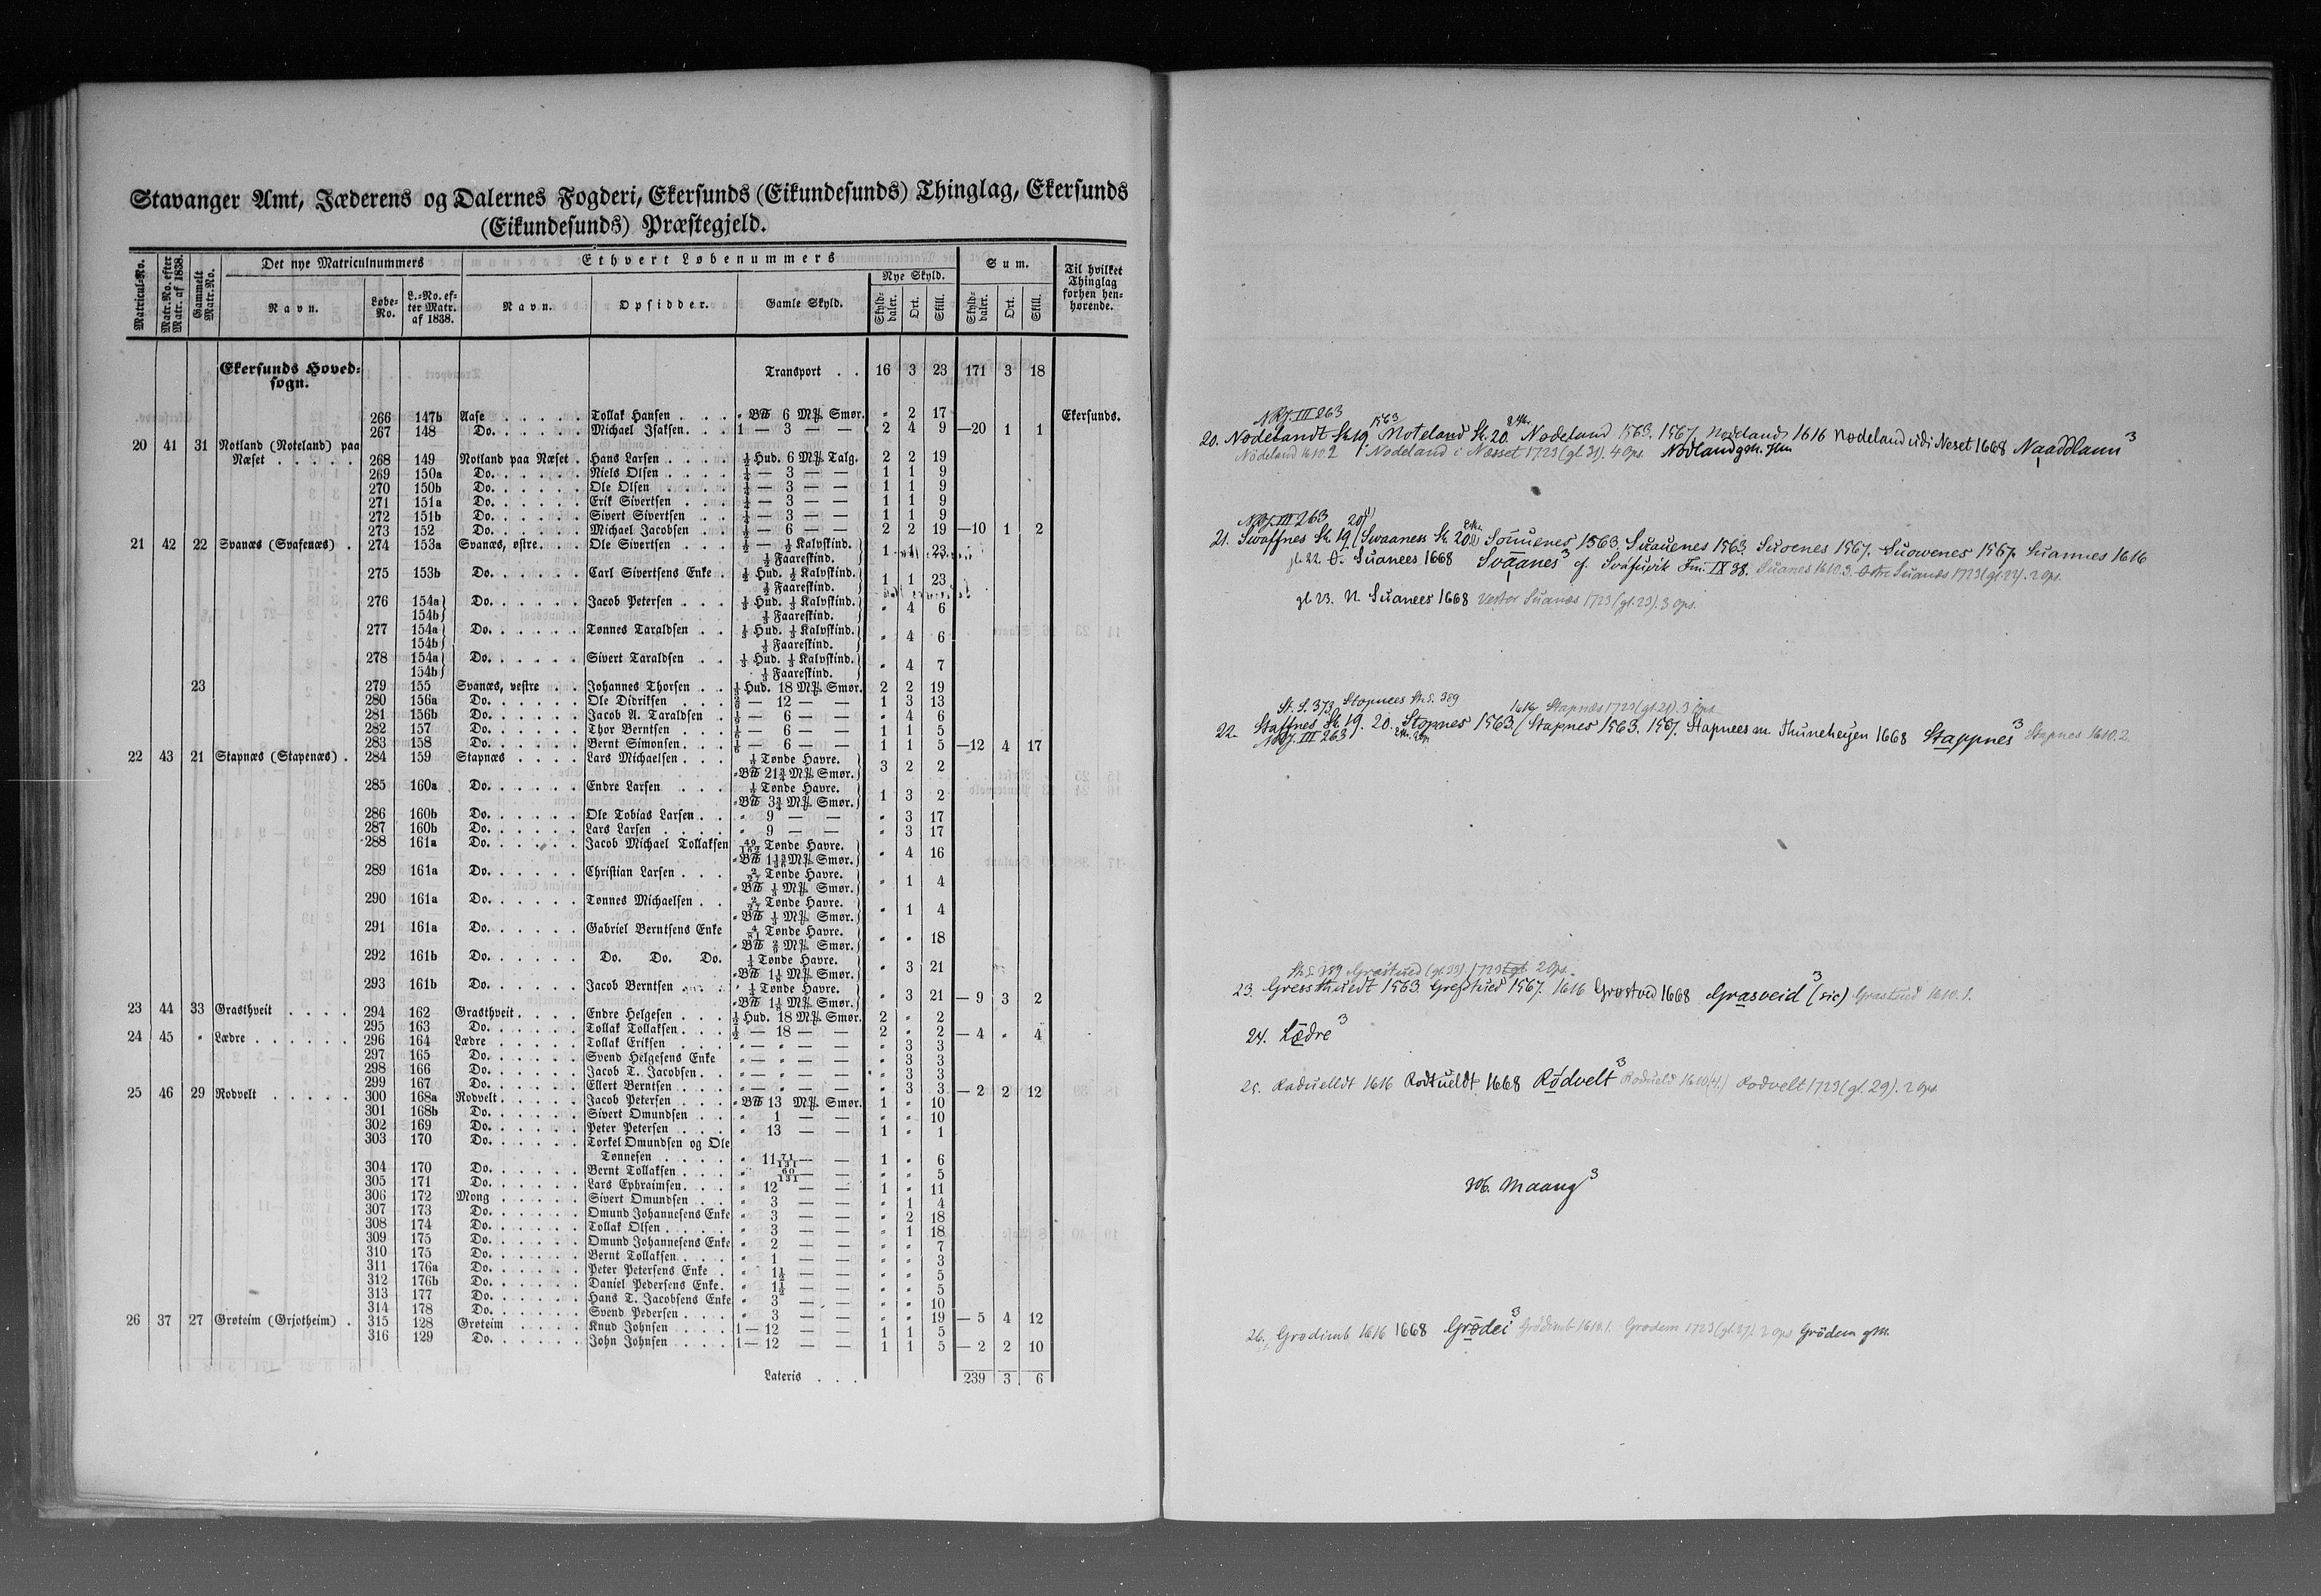 Stavanger Amt, Jæderens og Dalernes Fogderi, Ekersunds (Eikundesunds) Thinglag, Ekersunds
(Eikundesunds) Præstegjeld.
Matricul-No. | Matr.-No. efter Matr. af 1838. | Gammelt Matr.-No. | Det nye Matriculnummers | Ethvert Løbenummers | Sum. | Til hvilket Thinglag forhen henhørende.
Navn. | Løbe-No. | L.-No. efter Matr. af 1838. | Navn. | Opsidder. | Gamle Skyld. | Nye Skyld. | Skylddaler. | Ort. | Skill. | Skylddaler. | Ort. | Skill.
Ekersunds Hovedsogn. Transport . . 16 3 23 171 3 18
266 147b Aase Tollak Hansen " B℔ 6 M℔ Smør. " 2 17 Ekersunds.
267 148 Do. Michael Isaksen 1 — 3 — — 2 4 9 —20 1 1
20 41 31 Notland (Noteland) paa
Næset 268 149 Notland paa Næset Hans Larsen ½ Hud. 6 M℔ Talg. 2 2 19
269 150a Do. Niels Olsen ½ — 3 — — 1 1 9
270 150b Do. Ole Olsen ½ — 3 — — 1 1 9
271 151a Do. Erik Sivertsen ½ — 3 — — 1 1 9
272 151b Do. Sivert Sivertsen ½ — 3 — — 1 1 9
273 152 Do. Michael Jacobsen ½ — 6 — — 2 2 19 —10 1 2
21 42 22 Svanæs (Svafenæs) 274 153a Svanæs, østre Ole Sivertsen ½ — ½ Kalvskind. 1 1 23
½ Faareskind.
275 153b Do. Carl Sivertsens Enke ½ Hud. ½ Kalvskind. 1 1 23
½ Faareskind.
276 154a Do. Jacob Petersen ⅓ Hud. ⅓ Kalvskind. " 4 6
154b ⅓ Faareskind.
277 154a Do. Tønnes Taraldsen ⅓ Hud. ⅓ Kalvskind. " 4 6
154b ⅓ Faareskind.
278 154a Do. Sivert Taraldsen ⅓ Hud. ⅓ Kalvskind. " 4 7
154b ⅓ Faareskind.
23 279 155 Svanæs, vestre Johannes Thorsen Hud. 18 M℔ Smør. 2 2 19
280 156a Do. Ole Didriksen — 12 — — 1 3 13
281 156b Do. Jacob A. Taraldsen — 6 — — " 4 6
282 157 Do. Thor Berntsen — 6 — — 1 1 5
283 158 Do. Bernt Simonsen — 6 — — 1 1 5 —12 4 17
22 43 21 Stapnæs (Stapenæs) 284 159 Stapnæs Lars Michaelsen Tønde Havre. 3 2 2
" B℔ 21¾ M℔ Smør.
285 160a Do. Endre Larsen Tønde Havre. 1 3 2
" B℔ 3¾ M℔ Smør.
286 160b Do. Ole Tobias Larsen " 9 — — " 3 17
287 160b Do. Lars Larsen " 9 — — " 3 17
288 161a Do. Jacob Michael Tollaksen Tønde Havre. " 4 16
" B℔ M℔ Smør.
289 161a Do. Christian Larsen 2/27 Tønde Havre. " 1 4
" B℔ ⅓ M℔ Smør.
290 161a Do. Tønnes Michaelsen 2/27 Tønde Havre. " 1 4
" B℔ ⅓ M℔ Smør.
291 161a Do. Gabriel Berntsens Enke 4/81 Tønde Havre. " " 18
" B℔ M℔ Smør.
292 161b Do. Do. Do. Do. Tønde Havre. " 3 21
" B℔ M℔ Smør.
293 161b Do. Jacob Berntsen Tønde Havre. " 3 21 — 9 3 2
" B℔ M℔ Smør.
23 44 33 Grasthveit 294 162 Grasthveit Endre Helgesen ½ Hud. 18 M℔ Smør. 2 " 2
295 163 Do. Tollak Tollaksen ½ — 18 — — 2 " 2 — 4 " 4
24 45 " Lædre 296 164 Lædre Tollak Eriksen " — " — — " 3 3
297 165 Do. Svend Helgesens Enke " — " — — " 3 3
298 166 Do. Jacob T. Jacobsen " — " — — " 3 3
299 167 Do. Ellert Berntsen " — " — — " 3 3 — 2 2 12
25 46 29 Rodvelt 300 168a Rodvelt Jacob Petersen " B℔ 13 M℔ Smør. 1 " 10
301 168b Do. Sivert Omundsen " 1 — — " " 10
302 169 Do. Peter Petersen " 13 — — 1 " 1
303 170 Do. Torkel Omundsen og Ole
Tønnesen " 11 71/131 — — 1 " 6
304 170 Do. Bernt Tollaksen " 60/131 — — " " 5
305 171 Do. Lars Ephraimsen " 12 — — 1 " 11
306 172 Mong Sivert Omundsen " 3 — — " 1 4
307 173 Do. Omund Johannesens Enke " 3 — — " 2 18
308 174 Do. Tollak Olsen " 3 — — " 1 18
309 175 Do. Omund Johannesens Enke " 2 — — " " 7
310 175 Do. Bernt Tollaksen " 1 — — " " 3
311 176a Do. Peter Petersens Enke " 1½ — — " " 5
312 176b Do. Daniel Pedersens Enke " 1½ — — " " 5
313 177 Do. Hans T. Jacobsens Enke " 3 — — " " 10
314 178 Do. Svend Pedersen " 3 — — " " 19 — 5 4 12
26 37 27 Groteim (Grjotheim) 315 128 Groteim Knud Johnsen 1 — 12 — — 1 1 5
316 129 Do. John Johnsen 1 — 12 — — 1 1 5 — 2 2 10
Lateris . . . 239 3 6
NRJ. III 263 1563
20. Nodelandt Sk. 19. Noteland Sk. 20. Nodeland 1563. 1567. Nodelands 1616 Nodeland udi Neset 1668 Naaddlann 3
Nödeland 1610.2 Nodeland i Næsset 1723 (gl. 31). 4 Ops. Nödland gM.
NRJ. III 263 20
21. Swaffnes Sk. 19. (Swaaness Sk. 20 Souuenes 1563 Suauenes 1563 Suoenes 1567. Suowenes 1567. Suannes 1616
gl. 22. Ö. Suanees 1668 Svāanes 3 cf. Sváfuvik Fm. IX 38. Suanes 1610.3. Østre Suanæs 1723 (gl. 22). 2 Ops.
gl. 23. N. Suanees 1668 Vester Suanæs 1723 (gl. 23). 3 Ops.
St. S. 373. Stapnees St. S. 389 1616 Stapnæs 1723 (gl. 21). 3 Ops.
22. Staffnes Sk. 19. 20. Stopnes 1563. (Stapnes 1563. 1567. Stapnees m. Thuneheyen 1668 Stappnes 3 Stapnes 1610.2.
NRJ. III 263
St. S. 389 Grastued (gl. 33). 1723 2 Ops.
23. Gressthuedt 1563. Grestued 1567. 1616 Grostved 1668 Grasveid 3 (sic) Grastued 1610.1.
24. Lædre 3
25. Raduelldt 1616 Rodtueldt 1668 Rødvelt 3 Rodueld 1610 Rodvelt 1723 (gl. 29). 2 Ops.
306. Maang 3
26. Grodimb 1616 1668 Grödei 3 Grödimb 1610.1. Grodem 1723 (gl. 27). 2 Ops Grödem gM.